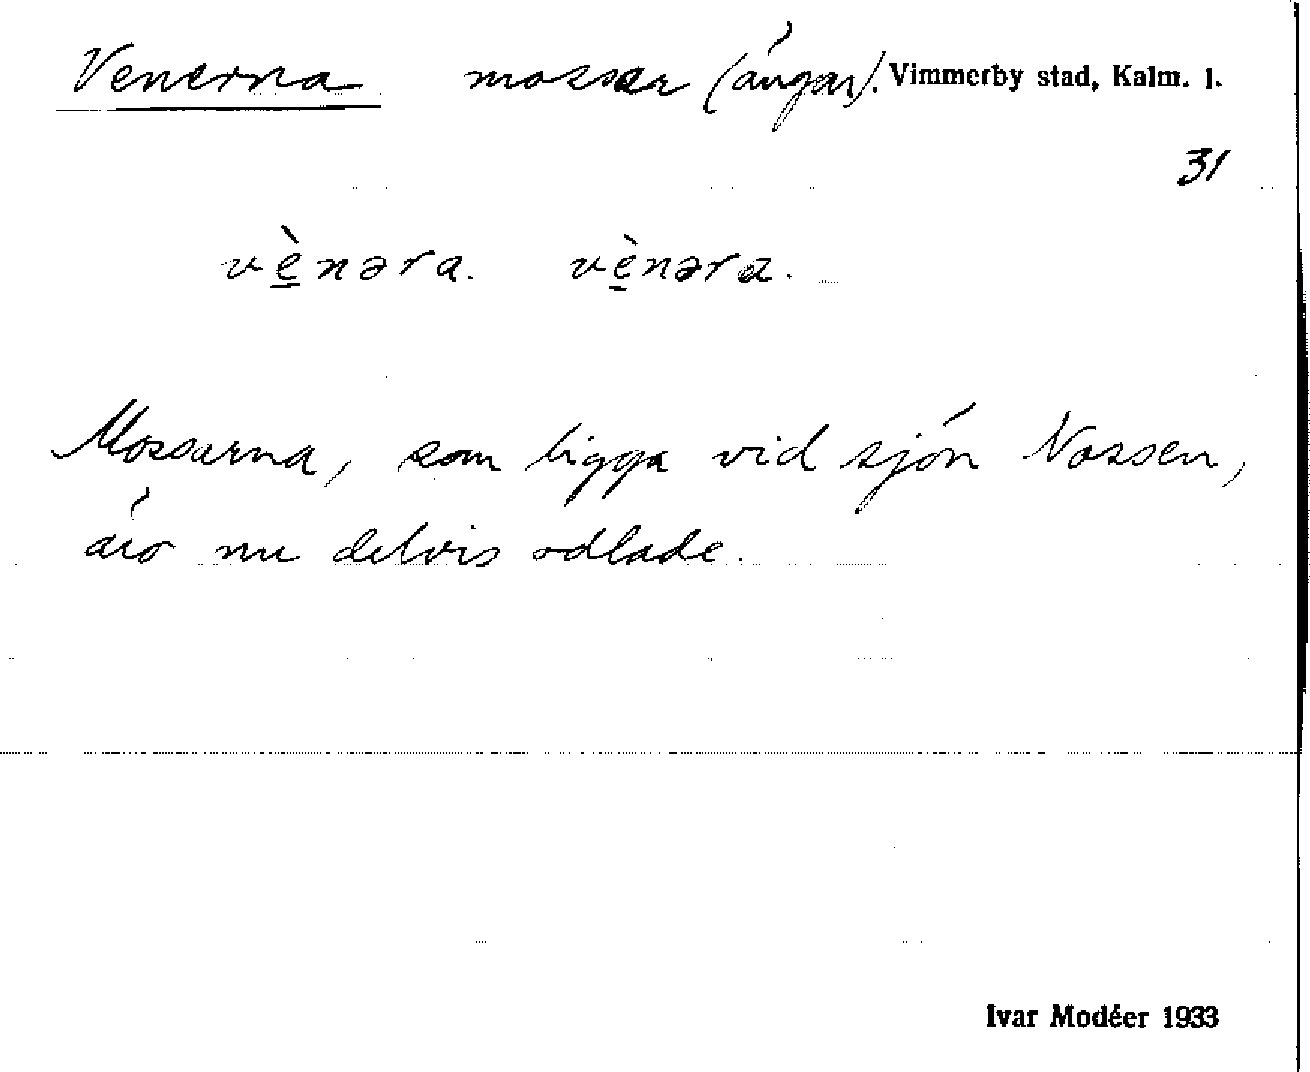 Venerna mossar (ängar). Vimmerby stad, Kalm. l.
31
vè̱nəra. vè̱nəra.
Mossarna, som ligga vid sjön Nossen,
äro nu delvis odlade.
Ivar Modéer 1933